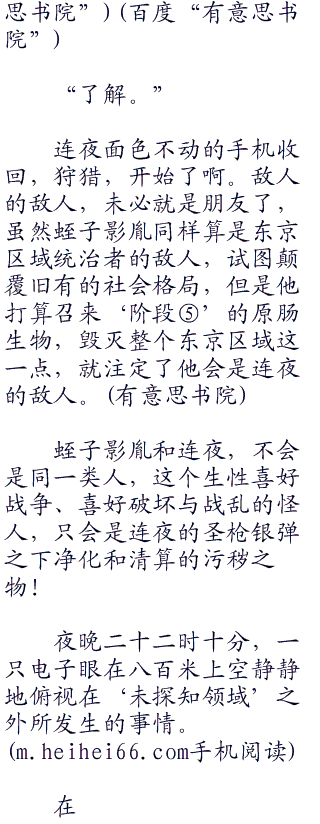 思书院”)(百度“有意思书
院”)
“了解。”
连夜面色不动的手机收
回，狩猎，开始了啊。敌人
的敌人，未必就是朋友了，
虽然蛭子影胤同样算是东京
区域统治者的敌人，试图颠
覆旧有的社会格局，但是他
打算召来‘阶段⑤’的原肠
生物，毁灭整个东京区域这
一点，就注定了他会是连夜
的敌人。(有意思书院)
蛭子影胤和连夜，不会
是同一类人，这个生性喜好
战争、喜好破坏与战乱的怪
人，只会是连夜的圣枪银弹
之下净化和清算的污秽之
物！
夜晚二十二时十分，一
只电子眼在八百米上空静静
地俯视在‘未探知领域’之
外所发生的事情。
(m.heihei66.com手机阅读)
在